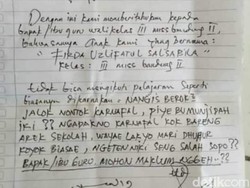 Dengan ini kami memberitahukan kepada
Bapak/Ibu guru wali kelas III miss bandung II
bahwasanya Anak kami yang bernama :
" FIKDA UZLIFATUL SALSABILA "
kelas : III miss bandung II
tidak bisa mengikuti pelajaran seperti
biasanya dikarenakan, NANGIS BEROE?
JALOK NONTOK KARNAFAL, PIYE BUMUNJIDAH
IKI ?? NGAPAKNO KARNAFAL KOK BARENG
AREK SEKOLAH, WAYAE LAKYO MARI DHUHUR
KOYOK BIASAE, NGETEN NIKI SENG SALAH SOPO ??
BAPAK/IBU GURU, MOHON MAKLUM NGGEH..??
detikcom